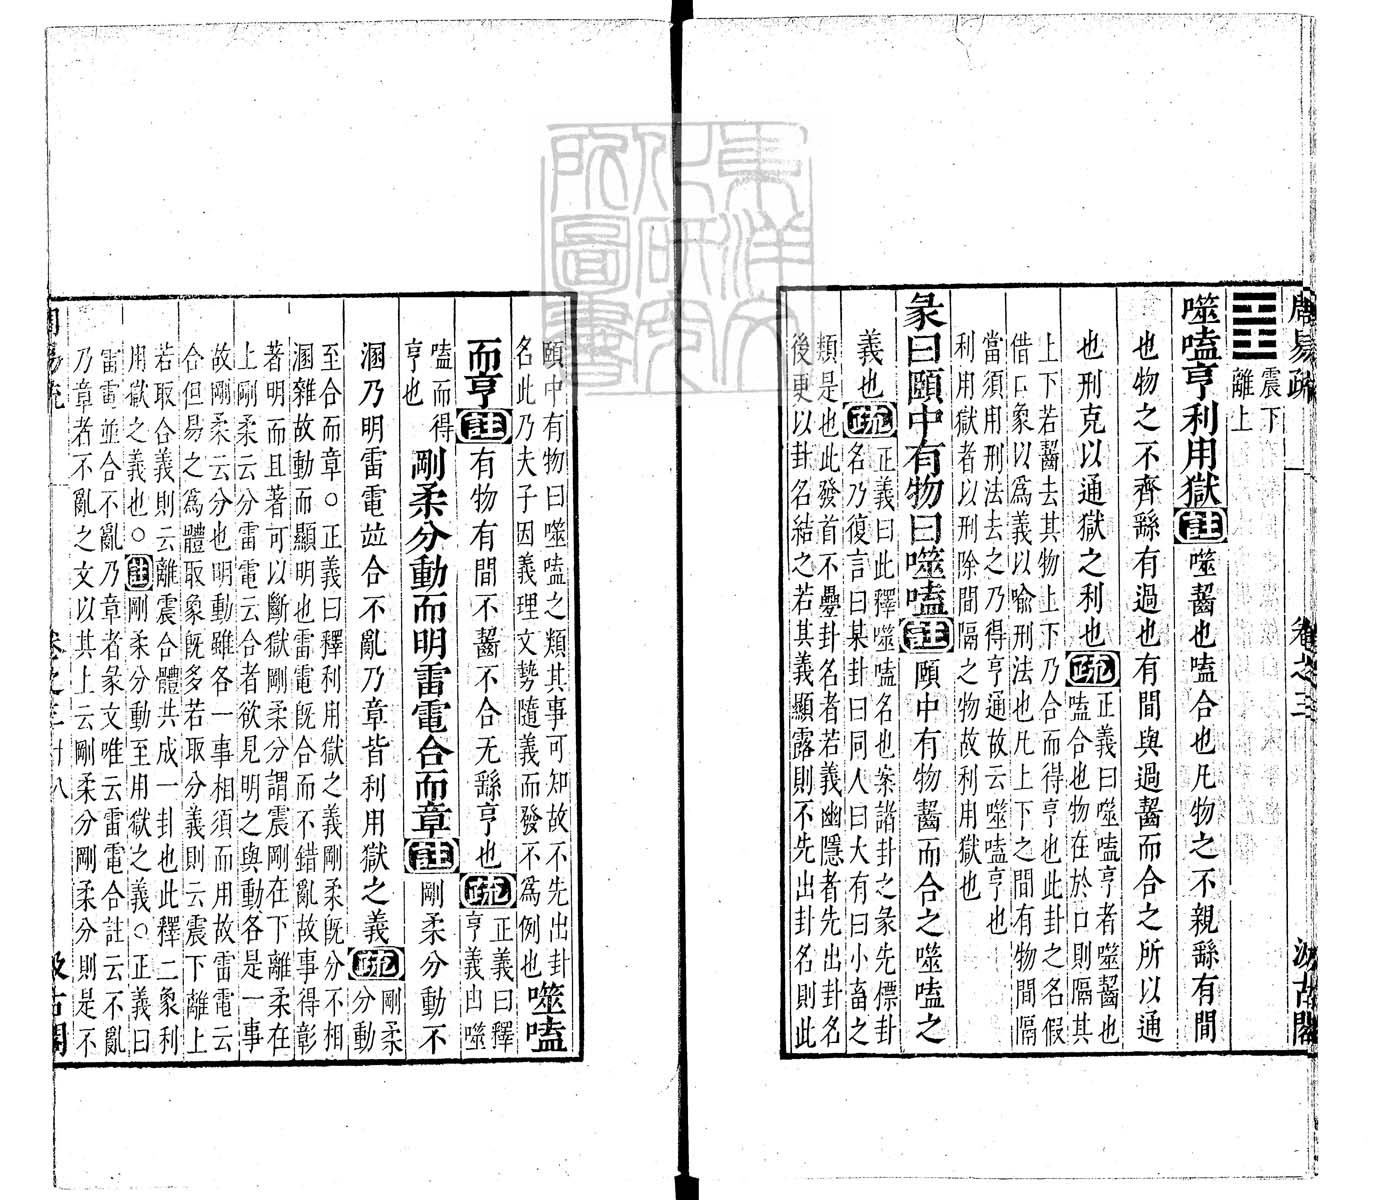 周易疏
卷之三
汲古閣
震下
離上
噬嗑亨利用獄註噬齧也嗑合也凡物之不親繇有間
也物之不齊繇有過也有間與過齧而合之所以通
也刑克以通獄之利也疏正義曰噬嗑亨者噬齧也
嗑合也物在於口則隔其
上下若齧去其物上下乃合而得亨也此卦之名假
借口象以為義以喻刑法也凡上下之間有物間隔
當須用刑法去之乃得亨通故云噬嗑亨也
利用獄者以刑除間隔之物故利用獄也
彖曰頤中有物曰噬嗑註頤中有物齧而合之噬嗑之
義也疏正義曰此釋噬嗑名也案諸卦之彖先標卦
名乃復言曰某卦曰同人曰大有曰小畜之
類是也此發首不疊卦名者若義幽隱者先出卦名
後更以卦名結之若其義顯露則不先出卦名則此
頤中有物曰噬嗑之類其事可知故不先出卦
名此乃夫子因義理文勢隨義而發不為例也噬嗑
而亨註有物有間不齧不合无繇亨也疏正義曰釋
亨義由噬
嗑而得
亨也
剛柔分動而明雷電合而章註剛柔分動不
溷乃明雷電並合不亂乃章皆利用獄之義疏剛柔
分動
至合而章○正義曰釋利用獄之義剛柔既分不相
溷雜故動而顯明也雷電既合而不錯亂故事得彰
著明而且著可以斷獄剛柔分謂震剛在下離柔在
上剛柔云分雷電云合者欲見明之與動各是一事
故剛柔云分也明動雖各一事相須而用故雷電云
合但易之為體取象既多若取分義則云震下離上
若取合義則云離震合體共成一卦也此釋二象利
用獄之義也○註剛柔分動至用獄之義○正義曰
雷電並合不亂乃章者彖文唯云雷電合註云不亂
乃章者不亂之文以其上云剛柔分剛柔分則是不
周易疏
卷之三
八
汲古閣
東洋文
化研究
所圖書